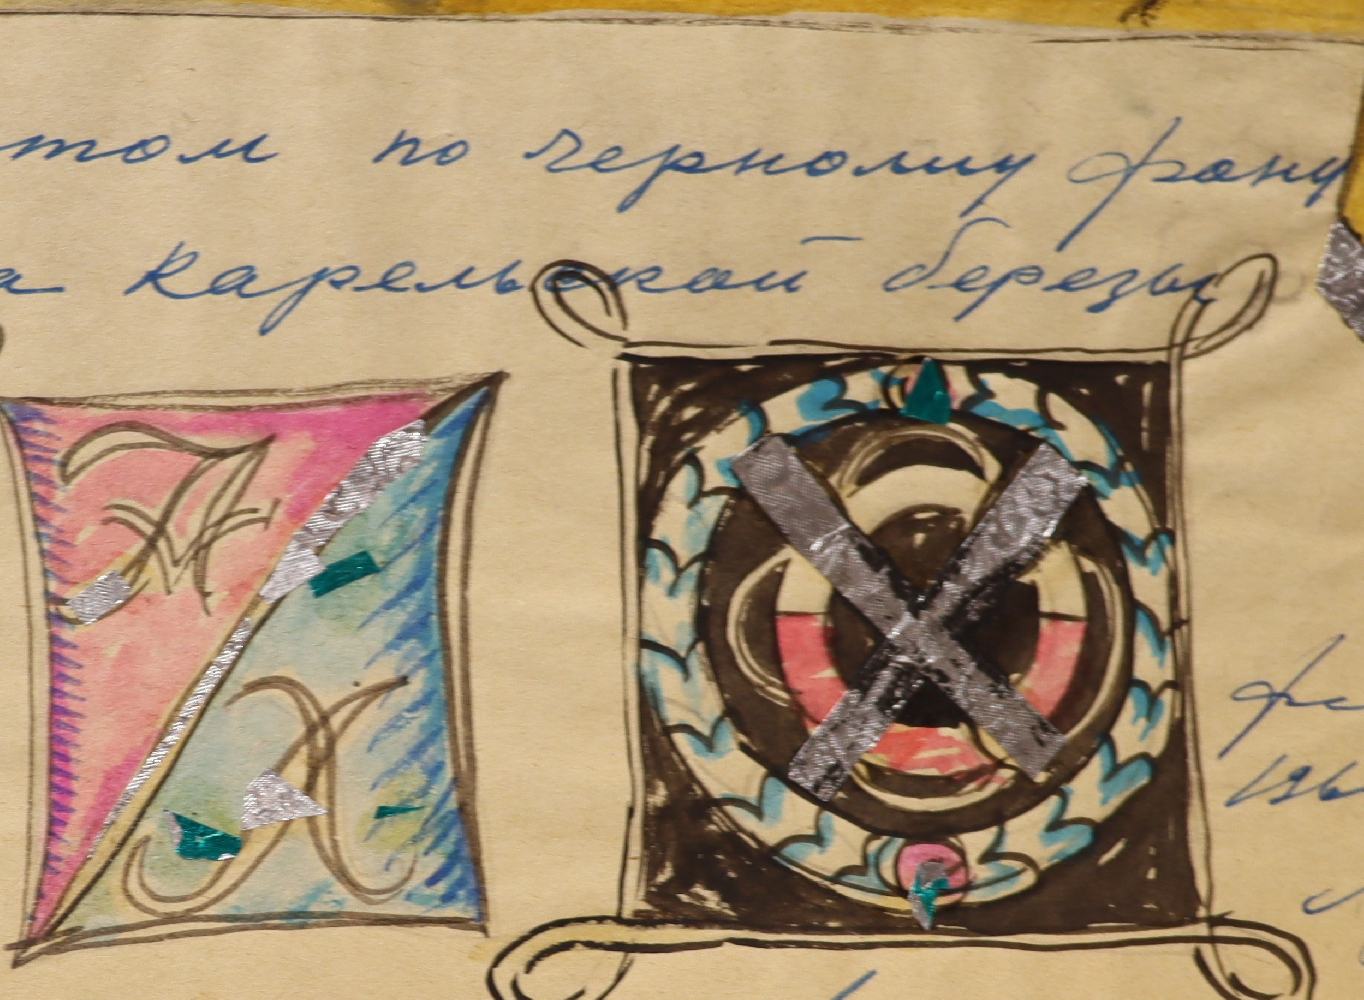 том по черному фону
а карельской березы